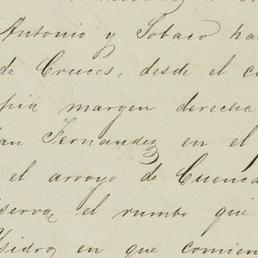 Antonio y Sobaco ha
de Cruces, desde el c
pia margen derecha
an Fernandez en el
el arroyo de Cuenca
serva el rumbo que
sidro en que comien